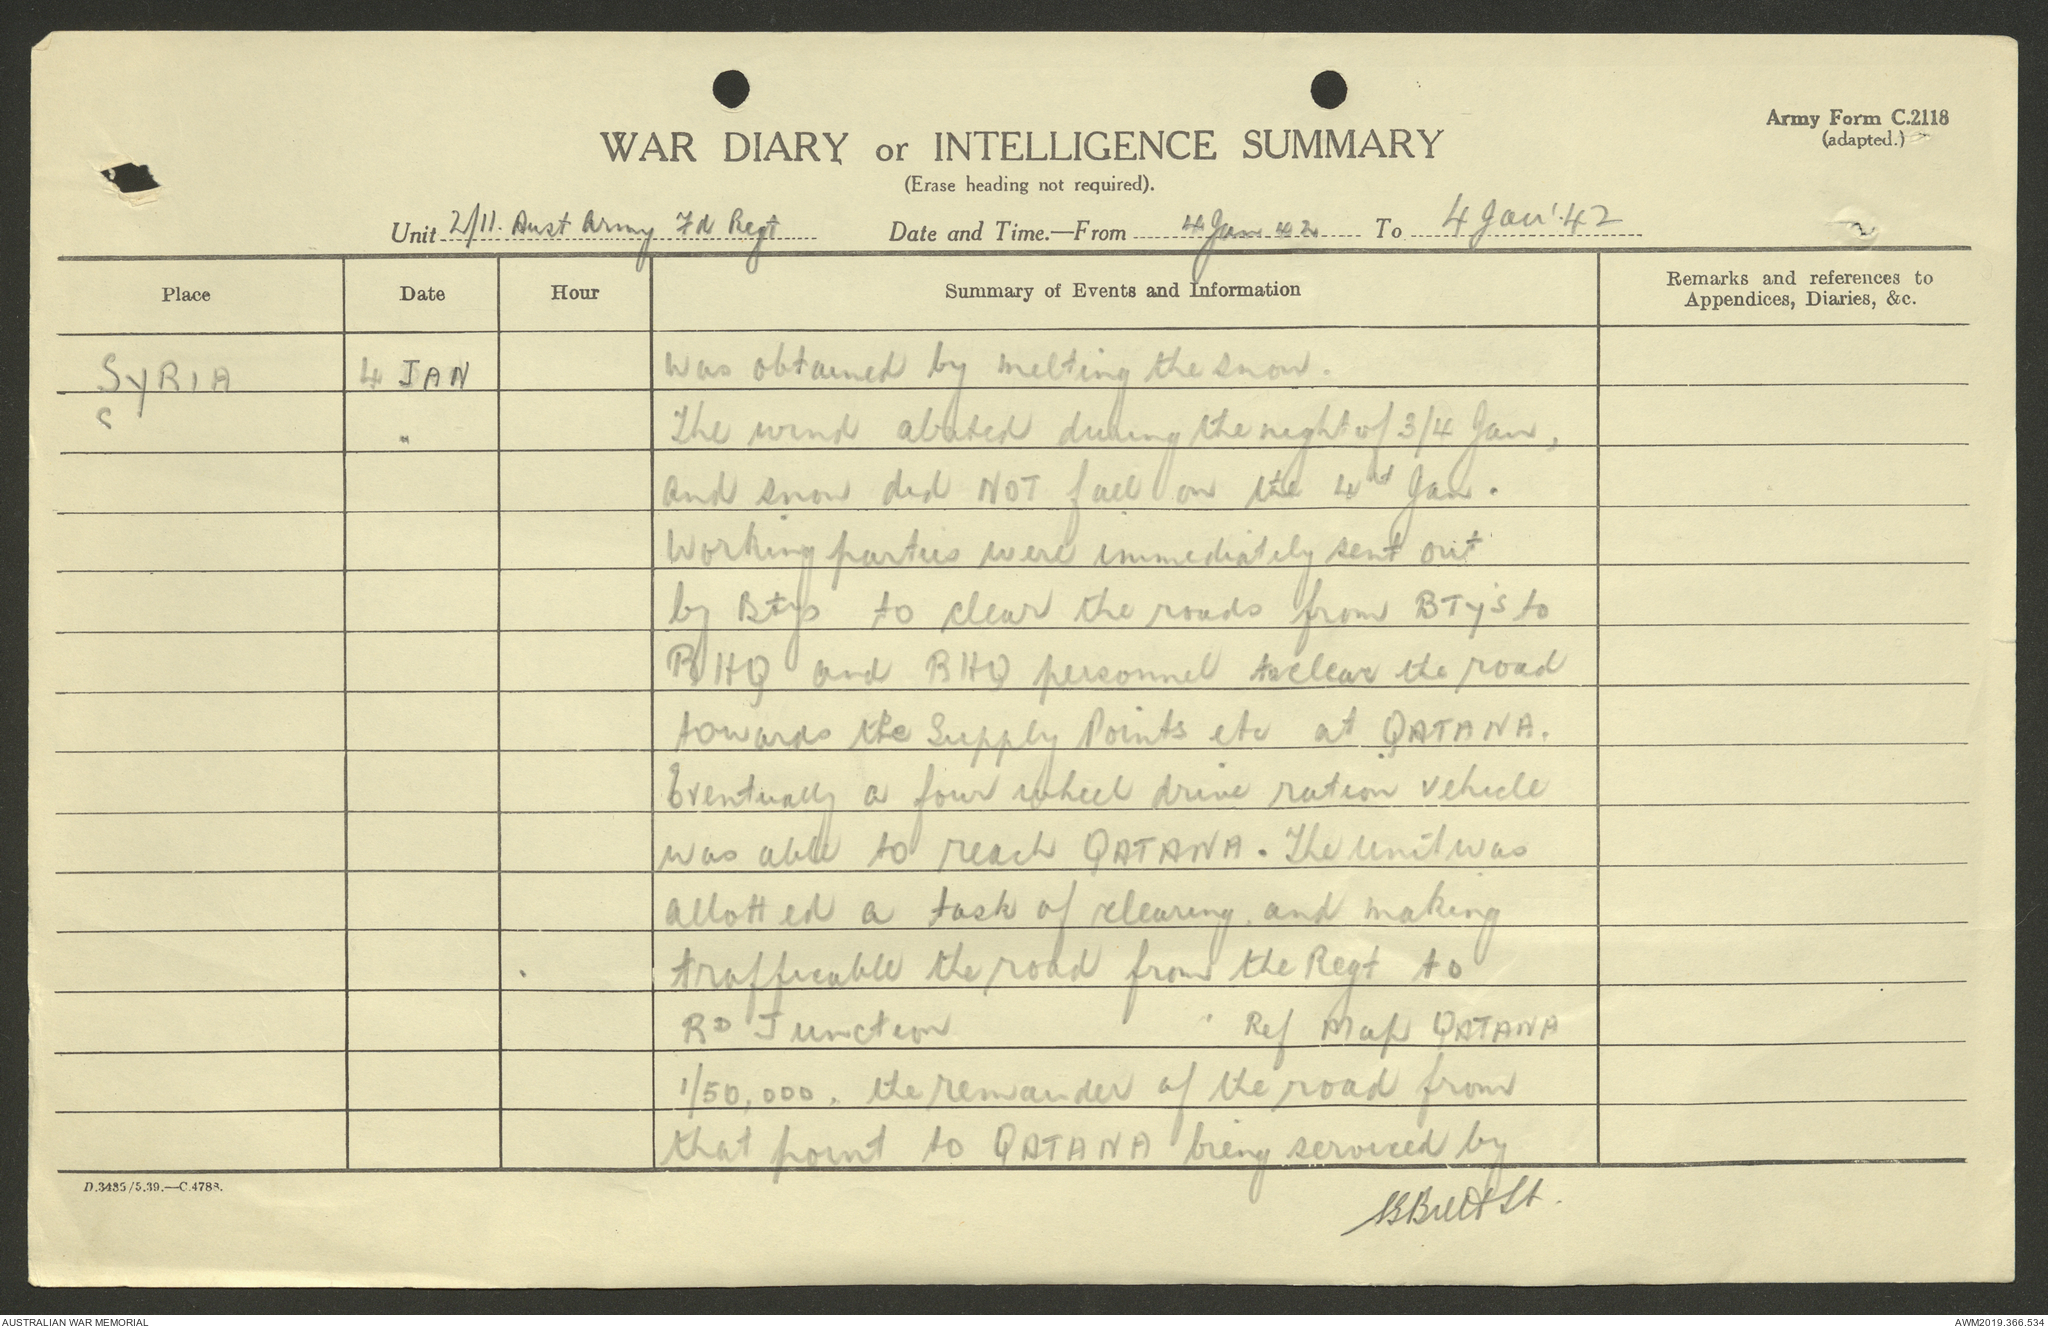 Army Form C.2118
(adapted.)
WAR DIARY or INTELLIGENCE SUMMARY
(Erase heading not required).
Unit 2/11. Aust Army Fd Regt Date and Time.—From 4 Jan 42 To 4 Jan '42
Place Date Hour Summary of Events and Information Remarks and references to
Appendices, Diaries, &c.
SYRIA 4 JAN was obtained by melting the snow.
S " The wind abated during the night of 3/4 Jan,
and snow did NOT fall on the 4th Jan.
Working parties were immediately sent out
by Btys to clear the roads from BTy's to
RHQ and BHQ personnel to clear the road
towards the Supply Points etc at QATANA.
Eventually a four wheel drive ration vehicle
was able to reach QATANA. The unit was
allotted a task of clearing and making
trafficable the road from the Regt to
RD Junction Ref Map QATANA
1/50,000. the remainder of the road from
that point to QATANA being serviced by
D.3485/5.39.—C.4788.
Brett Lt.
AUSTRALIAN WAR MEMORIAL AWM2019.366.534